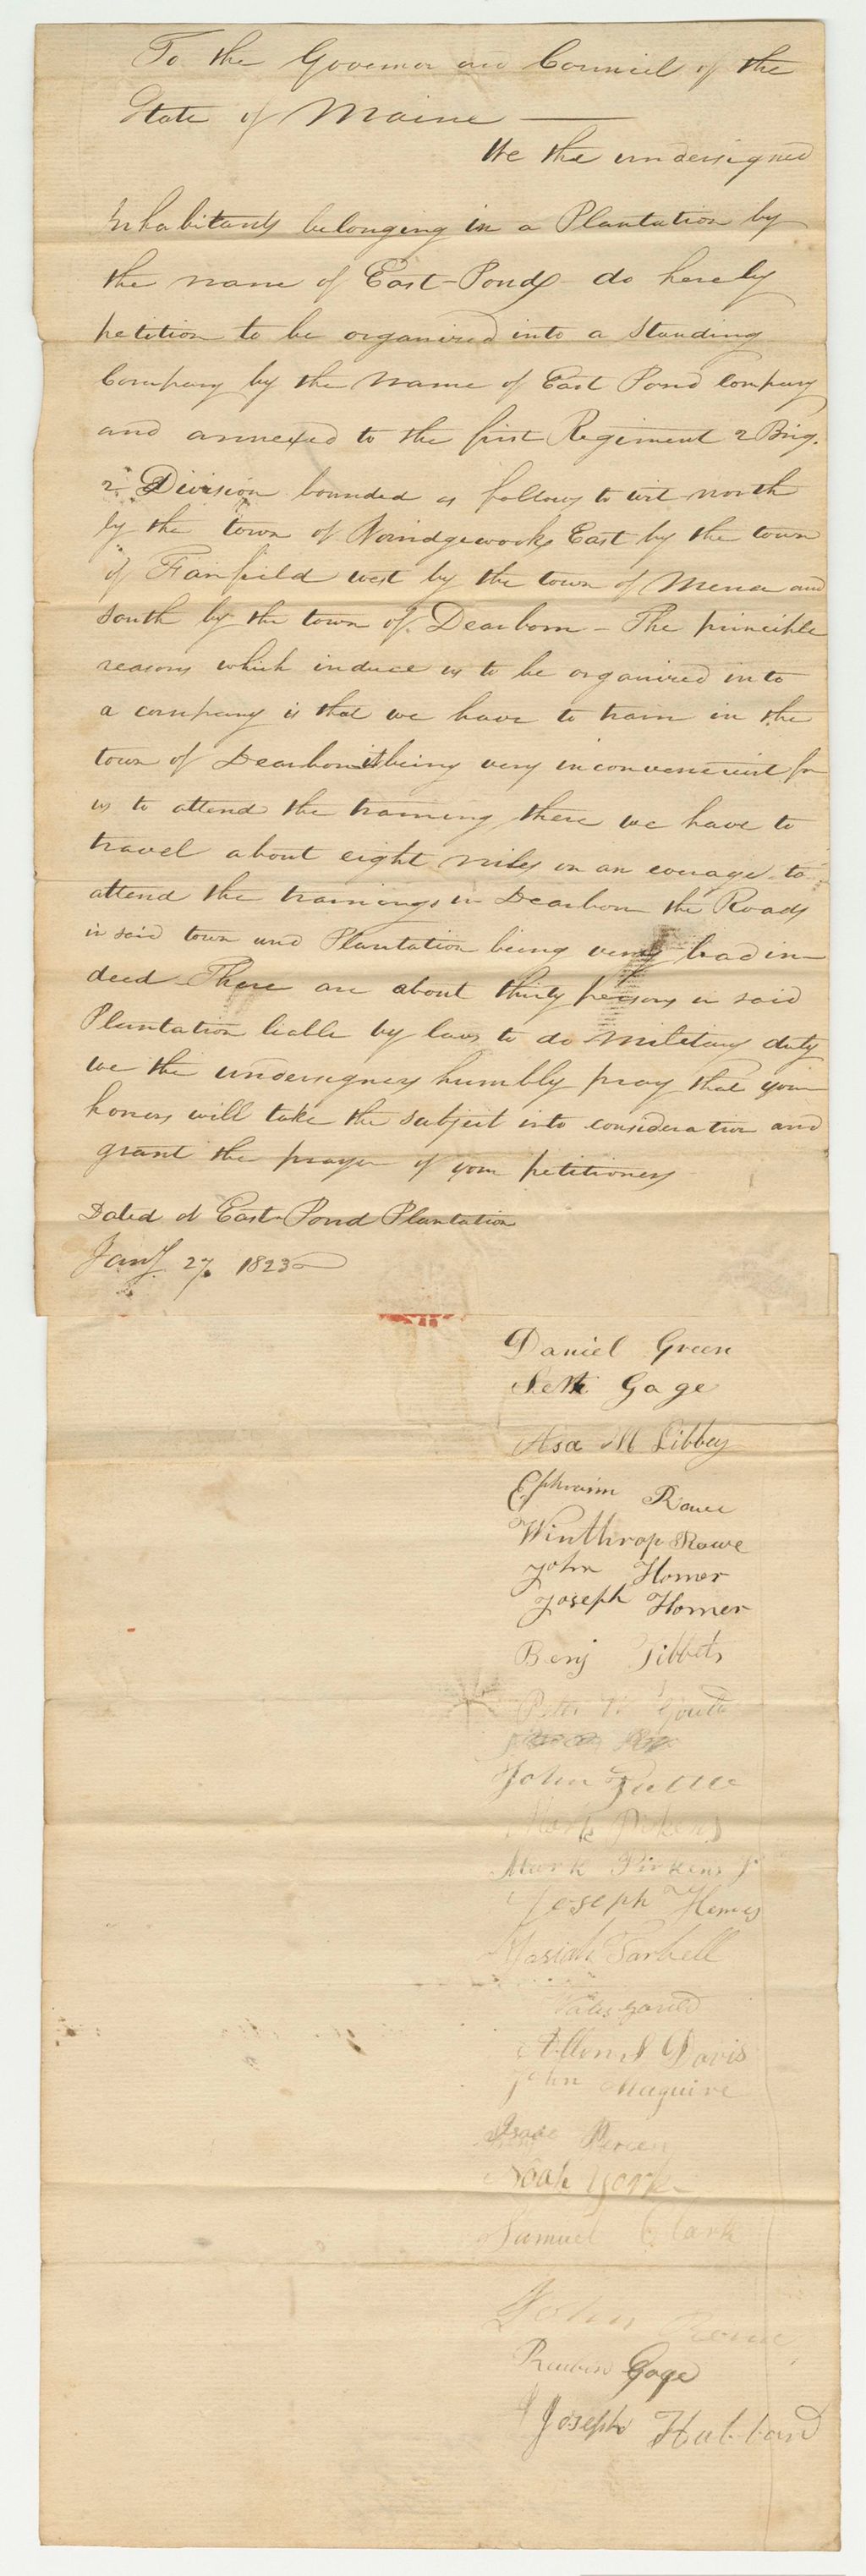 To the Governor and Council of the
State of Maine —
We the undersigned
Inhabitants belonging in a Plantation by
the name of East-Pond do hereby
petition to be organized into a Standing
Company by the name of East Pond Company
and annexed to the first Regiment 2 Brig.
2 Division bounded as follows to wit north
by the town of Norridgewock East by the town
of Fairfield west by the town of Mercer and
South by the town of Dearborn - The principle
reasons which induce us to be organized into
a company is that we have to train in the
town of Dearborn it being very inconvenient for
us to attend the training there we have to
travel about eight miles on an average to
attend the trainings in Dearborn the Roads
in said town and Plantation being very bad in-
deed There are about thirty persons in said
Plantation liable by law to do military duty
we the undersigners humbly pray that your
honors will take the subject into consideration and
grant the prayer of your petitioners
Dated at East-Pond Plantation
Jany 27 1823
Daniel Green
Seth Gage
Asa M Libbey
Ephraim Rowe
Winthrop Rowe
John Homer
Joseph Homer
Benj Tibbets
Peter
John Tuttle
Mark
Mark Pirkins Jr
Joseph
Josiah Tarbell
Davis
John Maguire
Isaac
Noah York
Samuel Clark
John Rowe
Reuben Gage
Joseph Hubbard